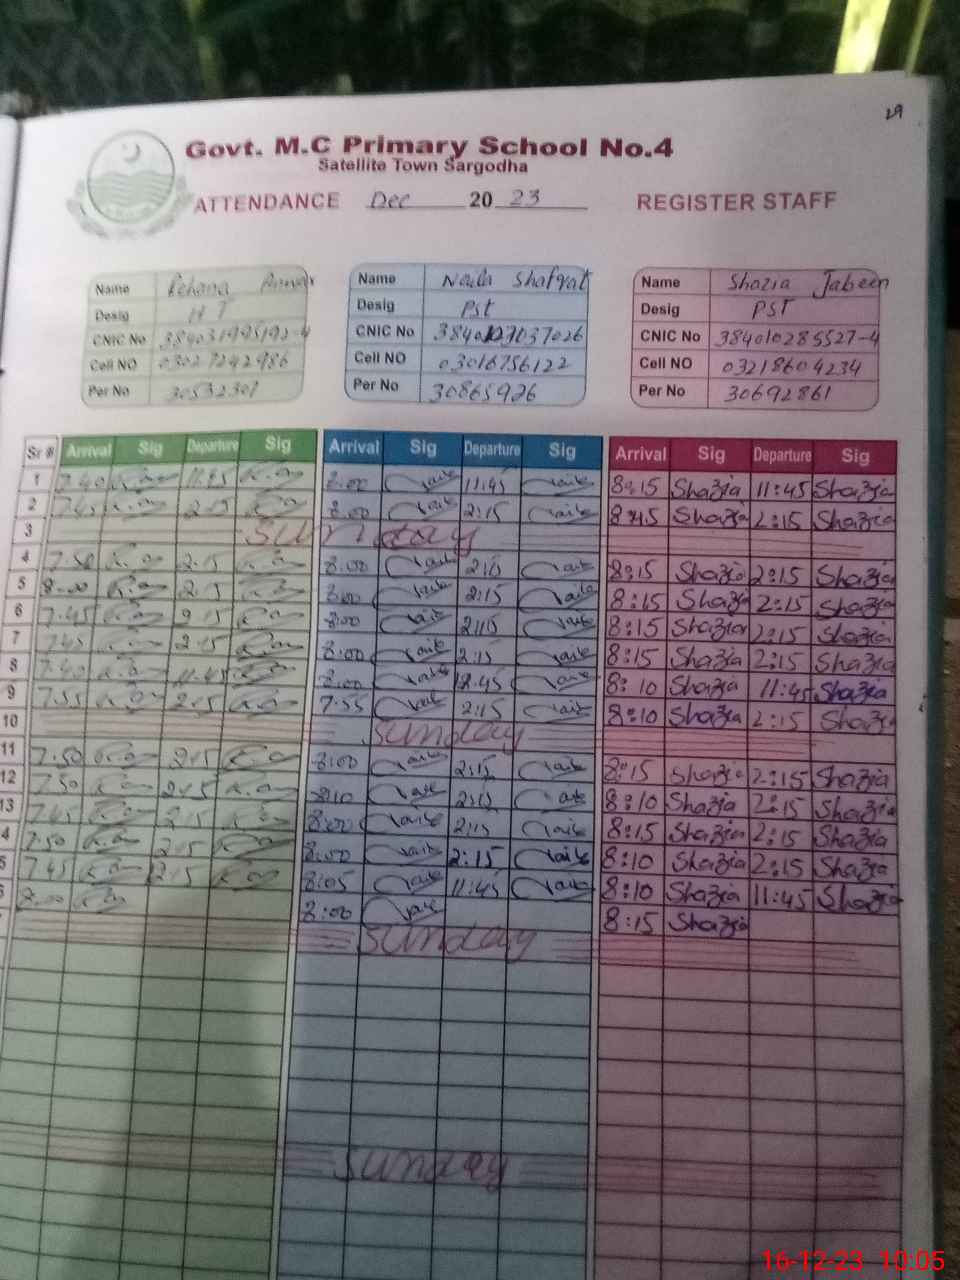 29
Govt. M.C Primary School No.4
Satellite Town Sargodha
ATTENDANCE Dec 20 23 REGISTER STAFF
Name Rehana Anwar Name Naila Shafqat Name Shazia Jabeen
Desig HT Desig PST Desig PST
CNIC No CNIC No CNIC No 3840102855274
Cell NO 03027242986 Cell NO 03016756122 Cell NO 03218604234
Per No Per No 30865926 Per No 30692861
Sr # Arrival Sig Departure Sig Arrival Sig Departure Sig Arrival Sig Departure Sig
1 7.40 11.45 8:00 11:45 8:15 Shazia 11:45 Shazia
2 7.45 2:15 8:00 2:15 Shazia 2:15 Shazia
3 Sunday
4 7.50 2.15 8:00 2:15 8:15 Shazia 2:15 Shazia
5 8.00 2.15 8:00 2:15 8:15 Shazia 2:15 Shazia
6 7.45 2.15 8:00 2:15 8:15 Shazia 2:15 Shazia
7 7.45 2.15 8:00 2:15 8:15 Shazia 2:15 Shazia
8 7.40 11.45 8:00 8:10 Shazia 11:45 Shazia
9 7.55 2.15 7:55 2:15 8:10 Shazia 2:15 Shazia
10 Sunday
11 7.50 2.15 8:00 2:15 8:15 Shazia 2:15 Shazia
12 7.50 2.15 8:10 2:15 8:10 Shazia 2:15 Shazia
13 7.45 2.15 8:00 2:15 8:15 Shazia 2:15 Shazia
4 7.50 2.15 8:00 2:15 8:10 Shazia 2:15 Shazia
5 7.45 2.15 8:05 11:45 8:10 Shazia 11:45 Shazia
8.00 8:00 8:15 Shazia
Sunday
Sunday
16-12-23 10:05